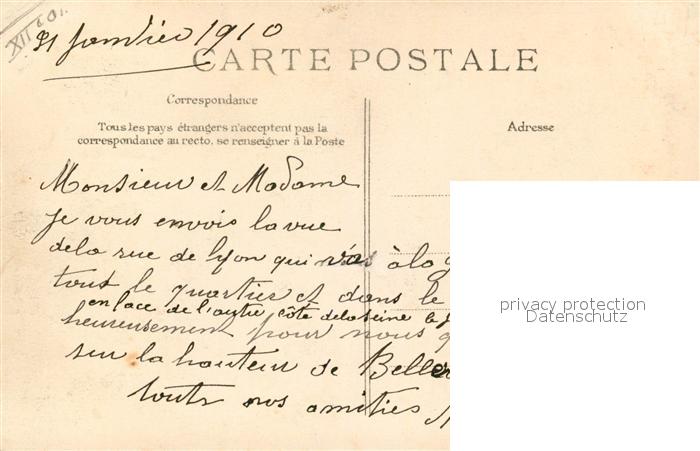 XII e 01.
31 Janvier 1910
CARTE POSTALE
Correspondance
Tous les pays étrangers n'acceptent pas la
correspondance au recto, se renseigner à la Poste
Adresse
Monsieur et Madame
je vous envois la vue
dela rue de Lyon qui vas à la g
tout le quartier et dans le
en face de l'autre côté dela seine le J
heureusement pour nous q
sur la hauteur de Belle
touts nos amities
privacy protection
Datenschutz